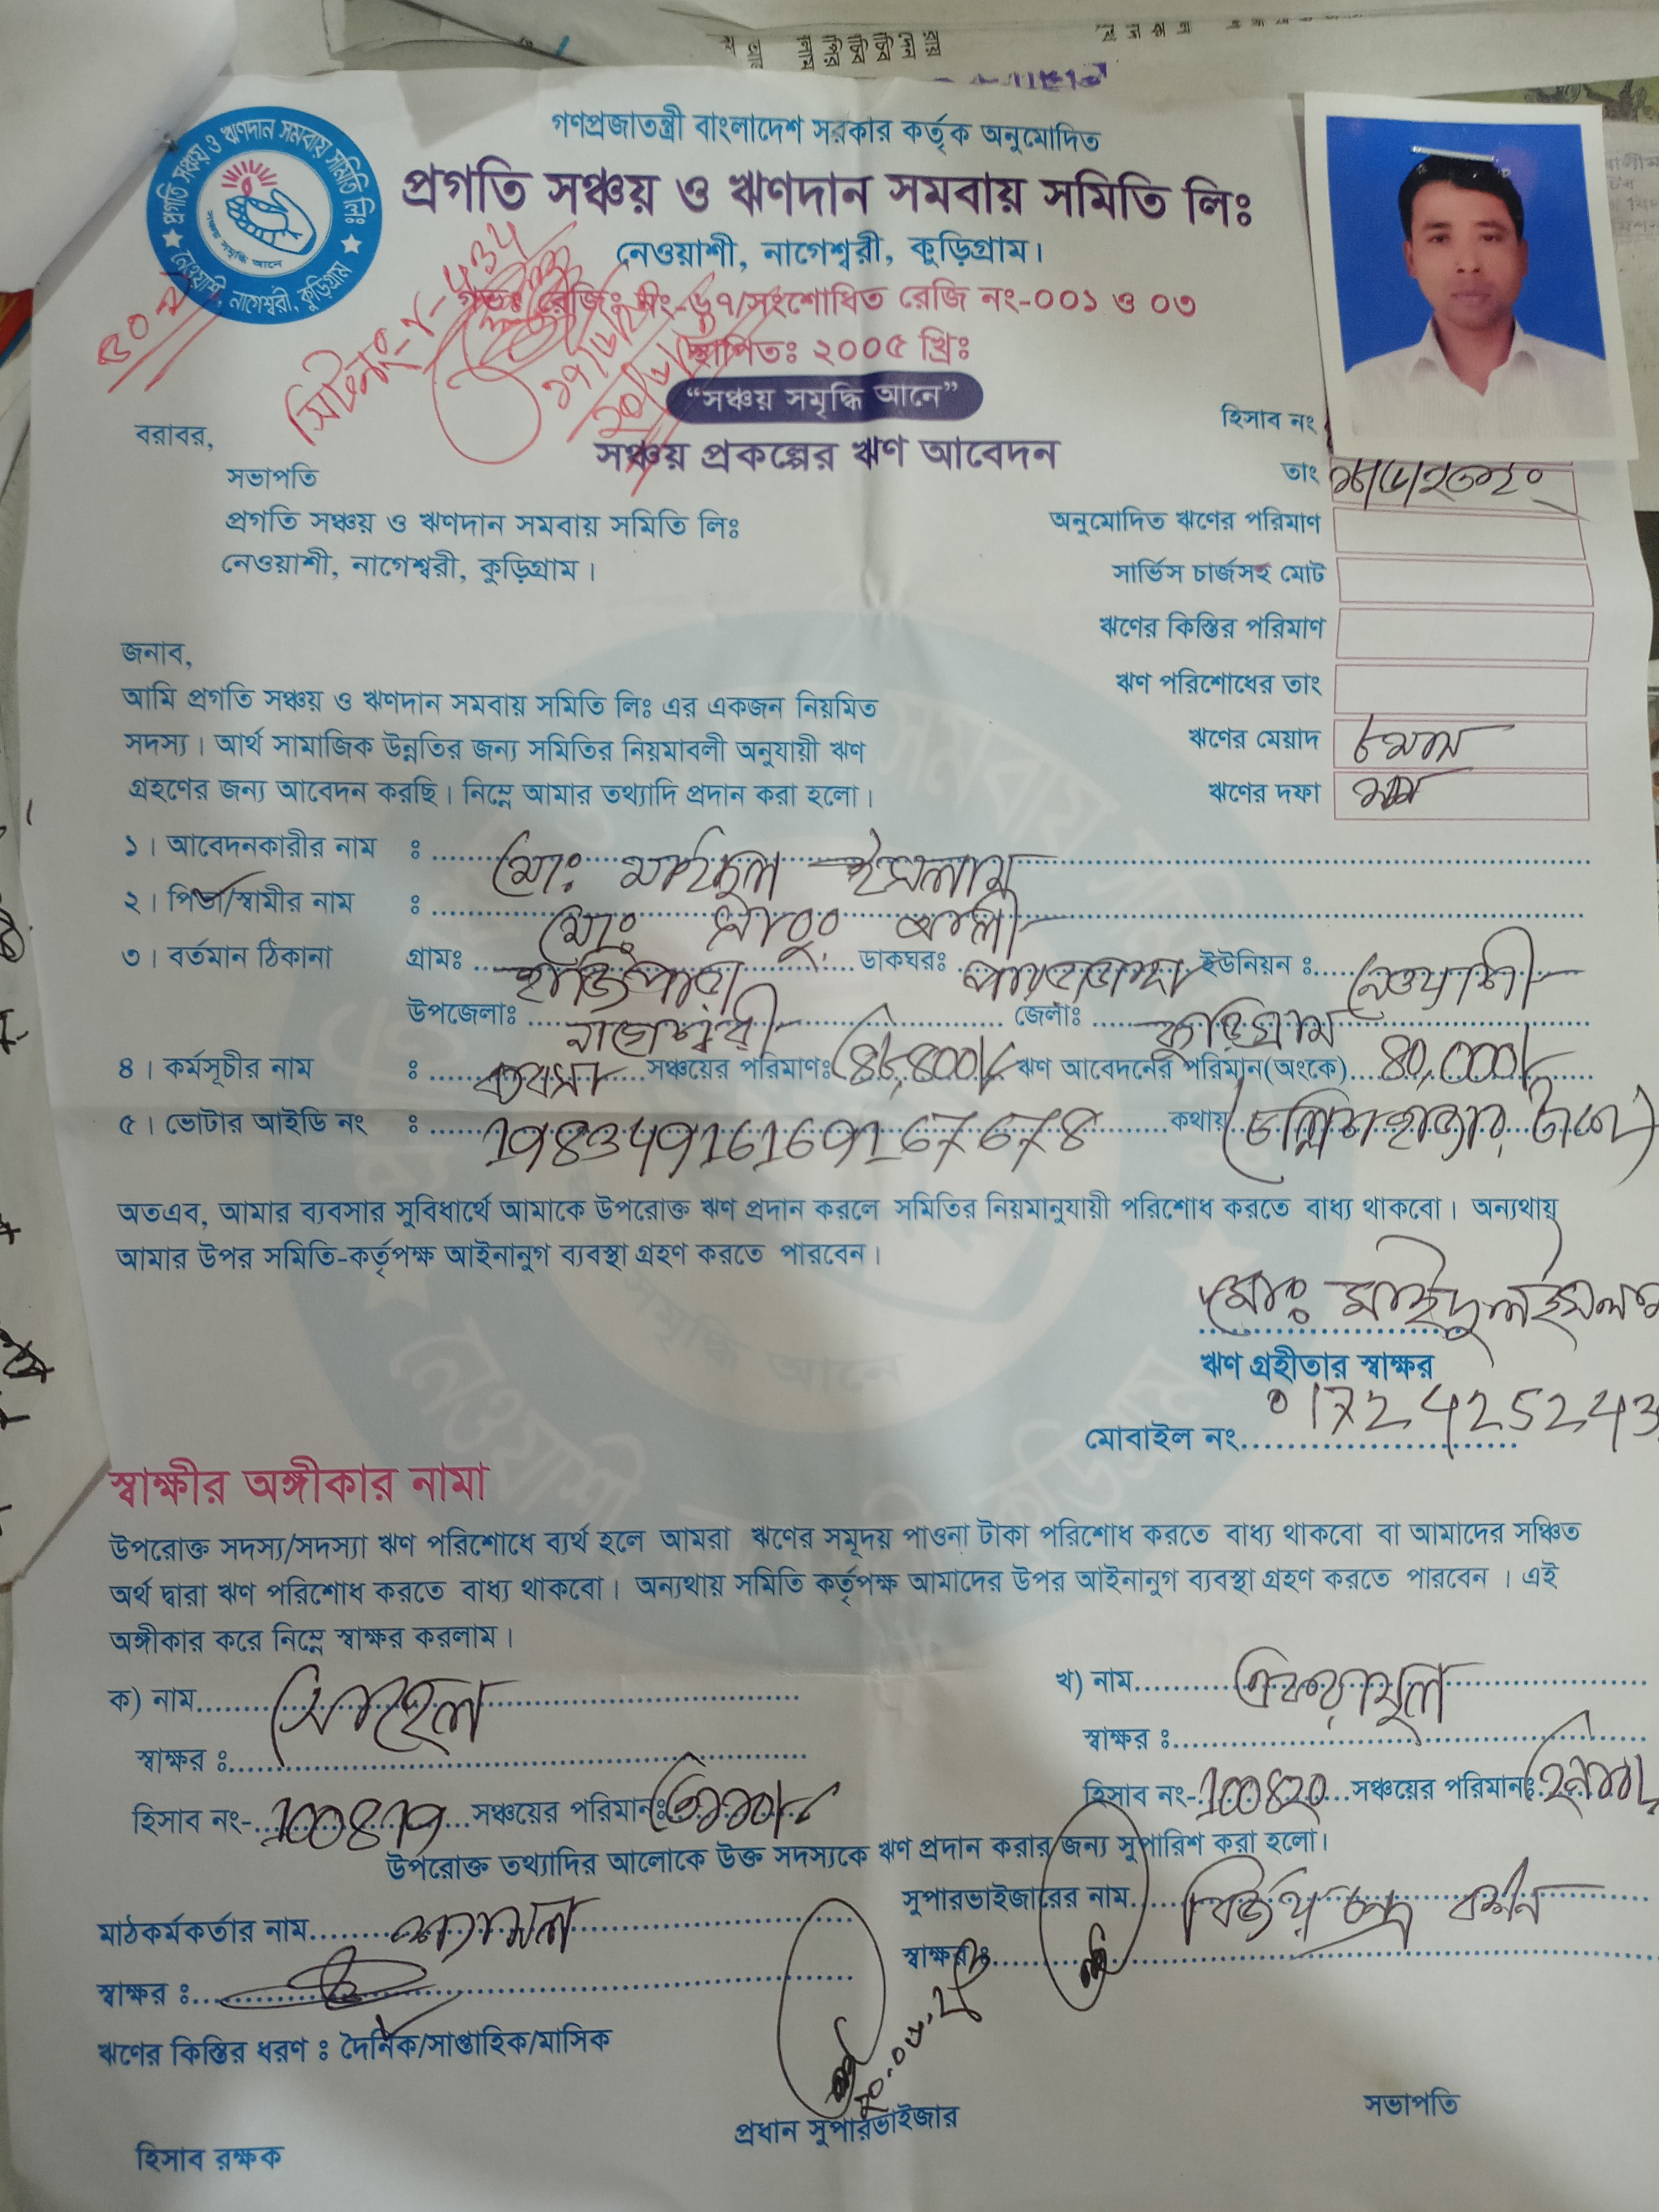 গণপ্রজাতন্ত্রী বাংলাদেশ সরকার কর্তৃক অনুমোদিত
প্রগতি সঞ্চয় ও ঋণদান সমবায় সমিতি লিঃ
নেওয়াশী, নাগেশ্বরী, কুড়িগ্রাম।
গভঃ রেজিঃ নং-৬৭/সংশোধিত রেজি নং-০০১ ও ০৩
স্থাপিতঃ ২০০৫ খ্রিঃ
“সঞ্চয় সমৃদ্ধি আনে”
সঞ্চয় প্রকল্পের ঋণ আবেদন
প্রগতি সঞ্চয় ও ঋণদান সমবায় সমিতি লিঃ
সঞ্চয় সমৃদ্ধি আনে
নেওয়াশী, নাগেশ্বরী, কুড়িগ্রাম
হিসাব নং
তাং
অনুমোদিত ঋণের পরিমাণ
সার্ভিস চার্জসহ মোট
ঋণের কিস্তির পরিমাণ
ঋণ পরিশোধের তাং
ঋণের মেয়াদ
ঋণের দফা
বরাবর,
সভাপতি
প্রগতি সঞ্চয় ও ঋণদান সমবায় সমিতি লিঃ
নেওয়াশী, নাগেশ্বরী, কুড়িগ্রাম।
জনাব,
আমি প্রগতি সঞ্চয় ও ঋণদান সমবায় সমিতি লিঃ এর একজন নিয়মিত
সদস্য। আর্থ সামাজিক উন্নতির জন্য সমিতির নিয়মাবলী অনুযায়ী ঋণ
গ্রহণের জন্য আবেদন করছি। নিম্নে আমার তথ্যাদি প্রদান করা হলো।
১। আবেদনকারীর নাম ঃ মোঃ মাইদুল ইসলাম
২। পিতা/স্বামীর নাম ঃ মোঃ আলী
৩। বর্তমান ঠিকানা গ্রামঃ হাজিপাড়া ডাকঘরঃ পয়রাডাঙ্গা ইউনিয়ন ঃ নেওয়াশী
উপজেলাঃ নাগেশ্বরী জেলাঃ কুড়িগ্রাম
৪। কর্মসূচীর নাম ঃ ব্যবসা সঞ্চয়ের পরিমাণঃ ঋণ আবেদনের পরিমান(অংকে) 80,000/-
৫। ভোটার আইডি নং ঃ কথায় (চল্লিশ হাজার টাকা)
অতএব, আমার ব্যবসার সুবিধার্থে আমাকে উপরোক্ত ঋণ প্রদান করলে সমিতির নিয়মানুযায়ী পরিশোধ করতে বাধ্য থাকবো। অন্যথায়
আমার উপর সমিতি-কর্তৃপক্ষ আইনানুগ ব্যবস্থা গ্রহণ করতে পারবেন।
মোঃ মাইদুল ইসলাম
ঋণ গ্রহীতার স্বাক্ষর
মোবাইল নং 0172425243
স্বাক্ষীর অঙ্গীকার নামা
উপরোক্ত সদস্য/সদস্যা ঋণ পরিশোধে ব্যর্থ হলে আমরা ঋণের সমূদয় পাওনা টাকা পরিশোধ করতে বাধ্য থাকবো বা আমাদের সঞ্চিত
অর্থ দ্বারা ঋণ পরিশোধ করতে বাধ্য থাকবো। অন্যথায় সমিতি কর্তৃপক্ষ আমাদের উপর আইনানুগ ব্যবস্থা গ্রহণ করতে পারবেন । এই
অঙ্গীকার করে নিম্নে স্বাক্ষর করলাম।
ক) নাম সোহেল
খ) নাম একরামুল
স্বাক্ষর ঃ
স্বাক্ষর ঃ
হিসাব নং- সঞ্চয়ের পরিমানঃ
হিসাব নং- 100820 সঞ্চয়ের পরিমানঃ
উপরোক্ত তথ্যাদির আলোকে উক্ত সদস্যকে ঋণ প্রদান করার জন্য সুপারিশ করা হলো।
মাঠকর্মকর্তার নাম
সুপারভাইজারের নাম বিজয় চন্দ্র বর্মন
স্বাক্ষর ঃ
স্বাক্ষর ঃ
ঋণের কিস্তির ধরণ ঃ দৈনিক/সাপ্তাহিক/মাসিক
প্রধান সুপারভাইজার
সভাপতি
হিসাব রক্ষক